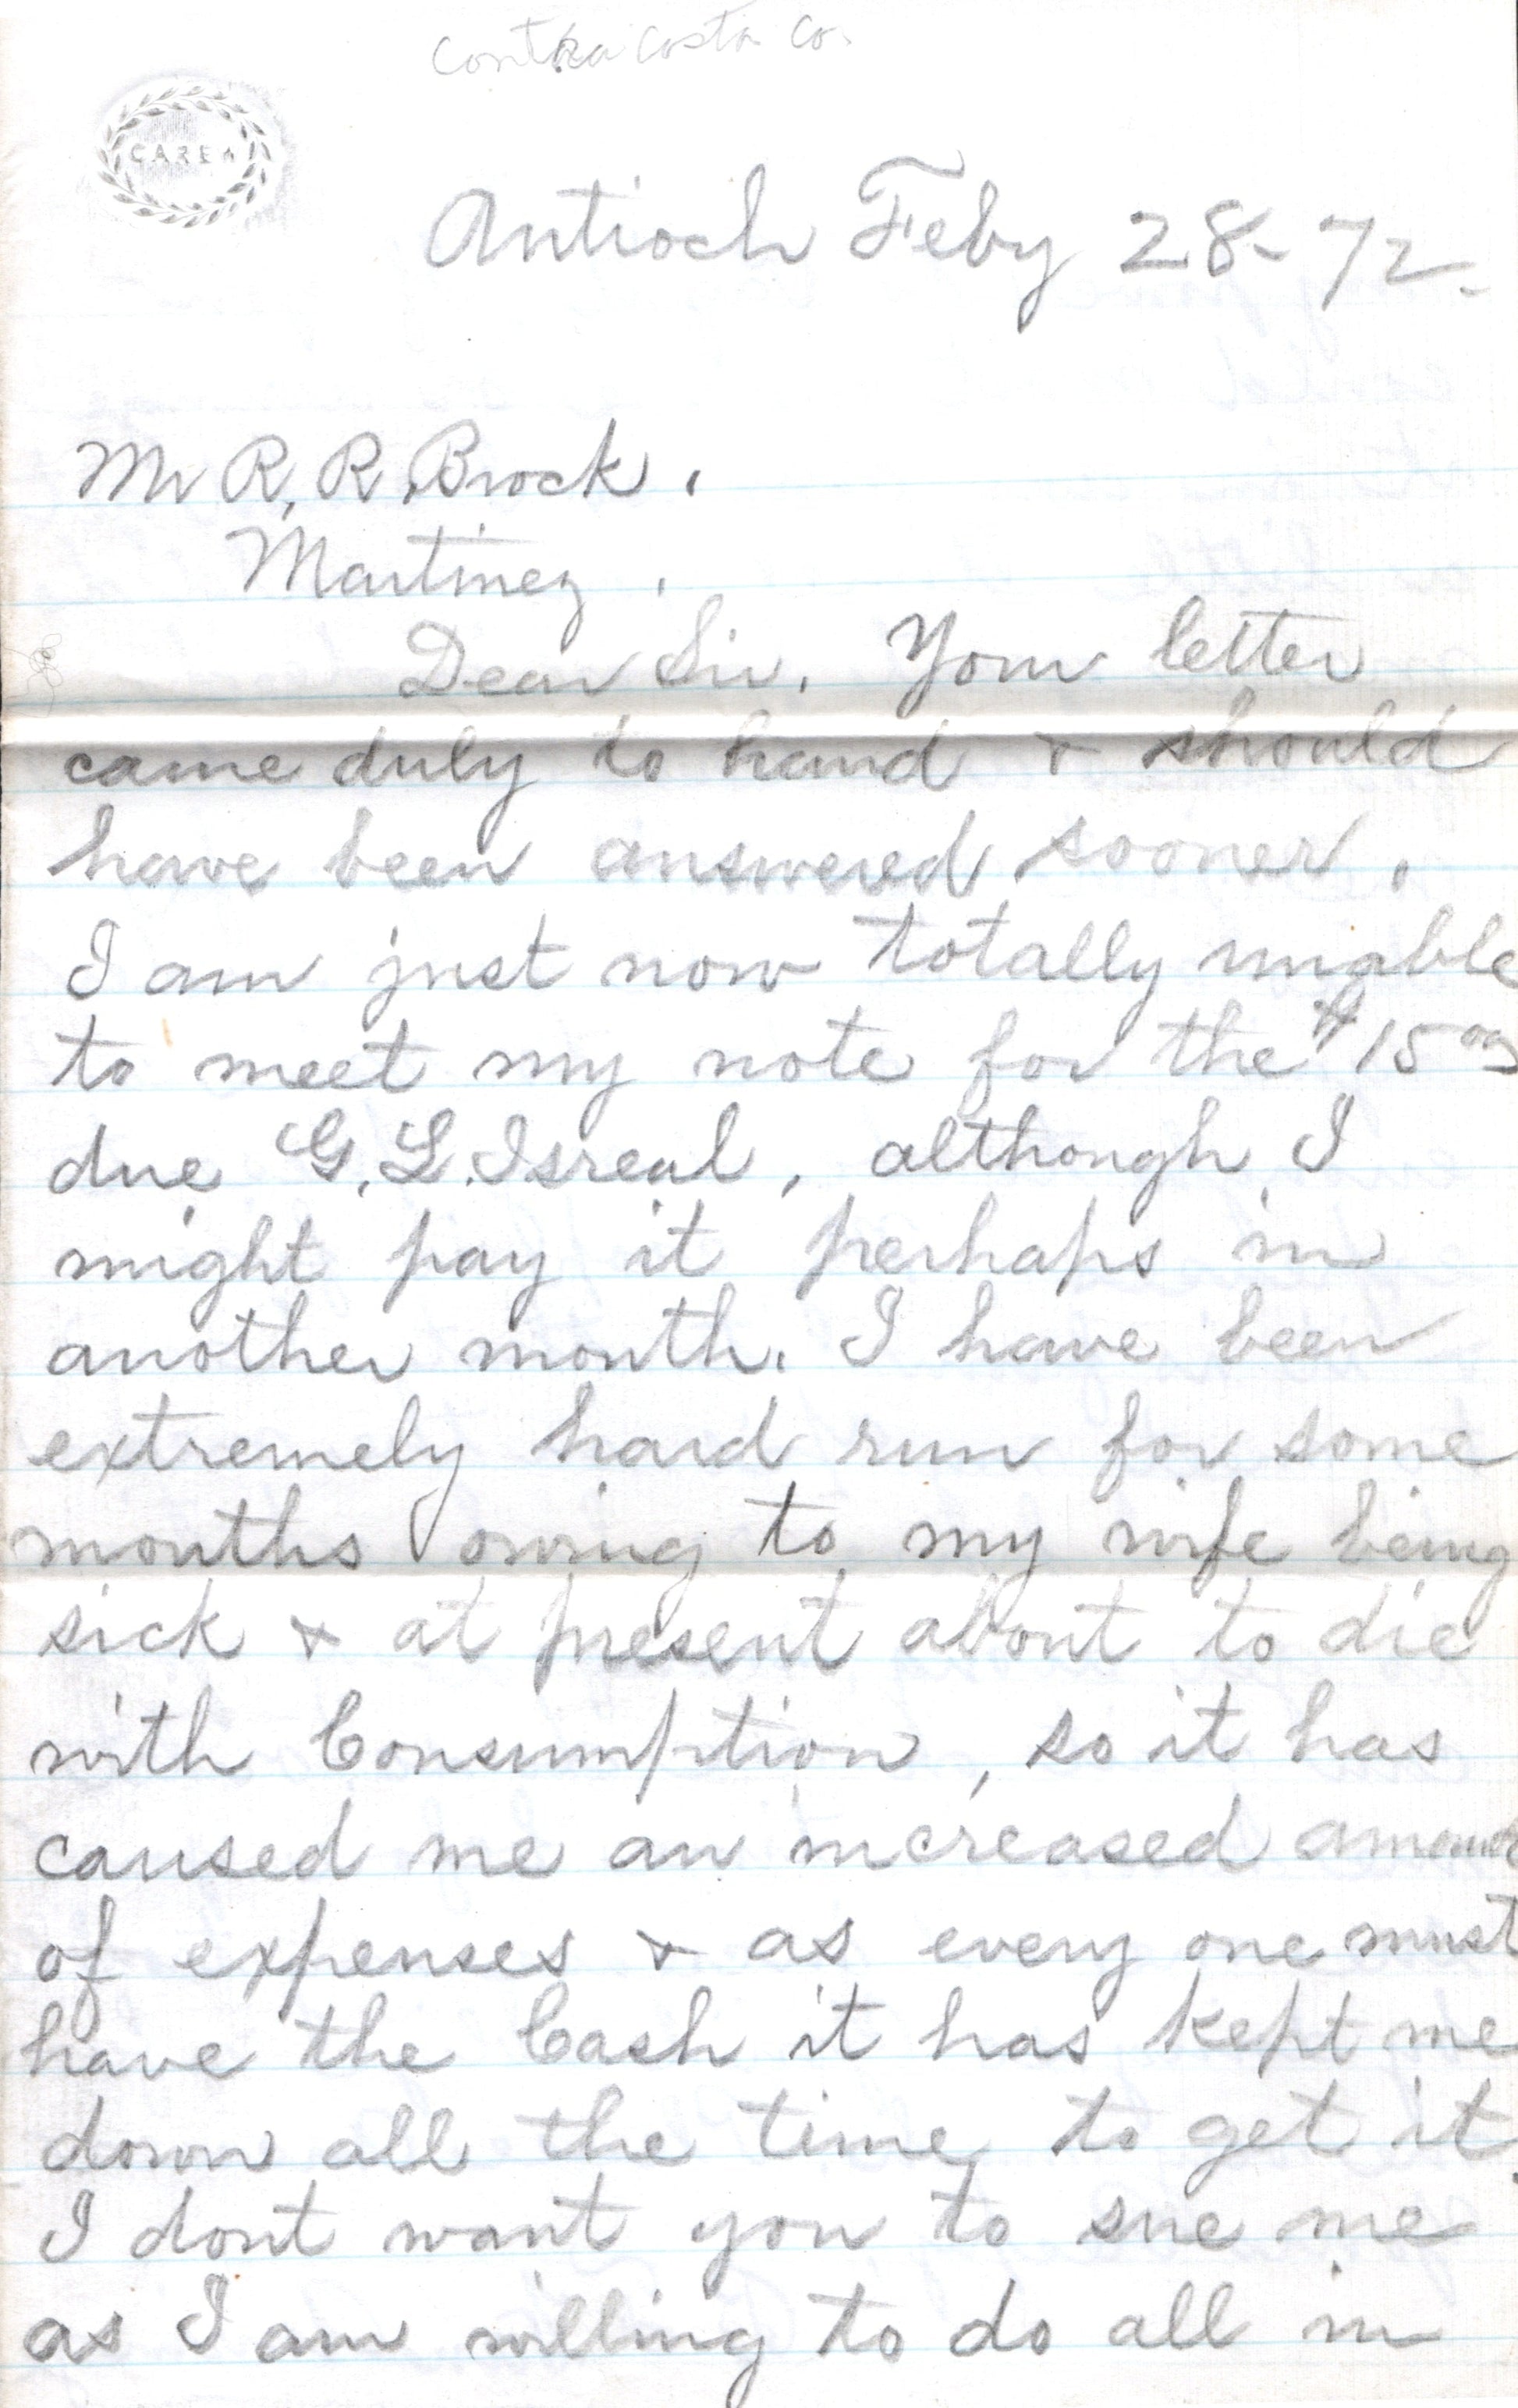 Contra Costa Co.
CAREW
Antioch Feby 28-72.
Mr R, R, Brock.
Martinez.
Dear Sir. Your letter
came duly to hand & should
have been answered sooner.
I am just now totally unable
to meet my note for the $15 00
due G. L. Isreal, although I
might pay it perhaps in
another month. I have been
extremely hard run for some
months owing to my wife being
sick & at present about to die
with Consumption, so it has
caused me an increased amount
of expenses & as every one must
have the Cash it has kept me
down all the time to get it.
I dont want you to sue me
as I am willing to do all in